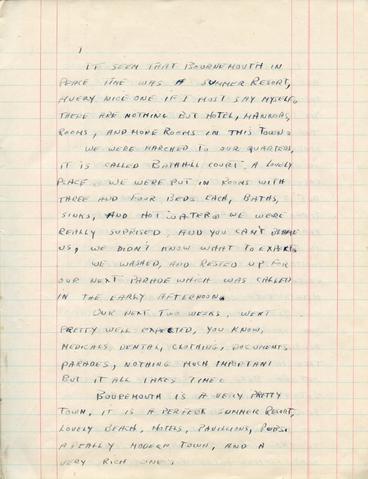 1
IT SEEM THAT BOURNEMOUTH IN
PEACE TIME WAS A SUMMER RESORT,
A VERY NICE ONE IF I MUST SAY MYSELF.
THERE ARE NOTHING BUT HOTEL, MANNORS,
ROOMS, AND MORE ROOMS IN THIS TOWN.
WE WERE MARCHED TO OUR QUARTERS,
IT IS CALLED BATHHILL COURT. A LOVELY
PLACE. WE WERE PUT IN ROOMS WITH
THREE AND FOUR BEDS EACH, BATHS,
SINKS, AND HOT WATER. WE WERE
REALLY SUPRISED, AND YOU CAN'T BLAME
US, WE DIDN'T KNOW WHAT TO EXPECT.
WE WASHED, AND RESTED UP FOR
OUR NEXT PARADE WHICH WAS CALLED
IN THE EARLY AFTERNOON.
OUR NEXT TWO WEEKS, WENT
PRETTY WELL EXPECTED, YOU KNOW,
MEDICALS, DENTAL, CLOTHING, DOCUMENTS
PARADES, NOTHING MUCH IMPORTANT
BUT IT ALL TAKES TIME.
BOUREMOUTH IS A VERY PRETTY
TOWN, IT IS A PERFECT SUMMER RESORT,
LOVELY BEACH, HOTELS, PAVILIONS, PUBS.
A REALLY MODERN TOWN, AND A
VERY RICH ONE.